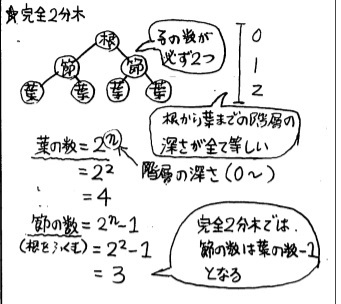 ☆完全2分木
根
子の数が
必ず2つ
節 節
葉 葉 葉 葉
0
1
2
根から葉までの階層の
深さが全て等しい
葉の数=2ⁿ
=2²
=4
階層の深さ(0〜)
節の数=2ⁿ-1
(根をふくむ)=2²-1
=3
完全2分木では、
節の数は葉の数-1
となる